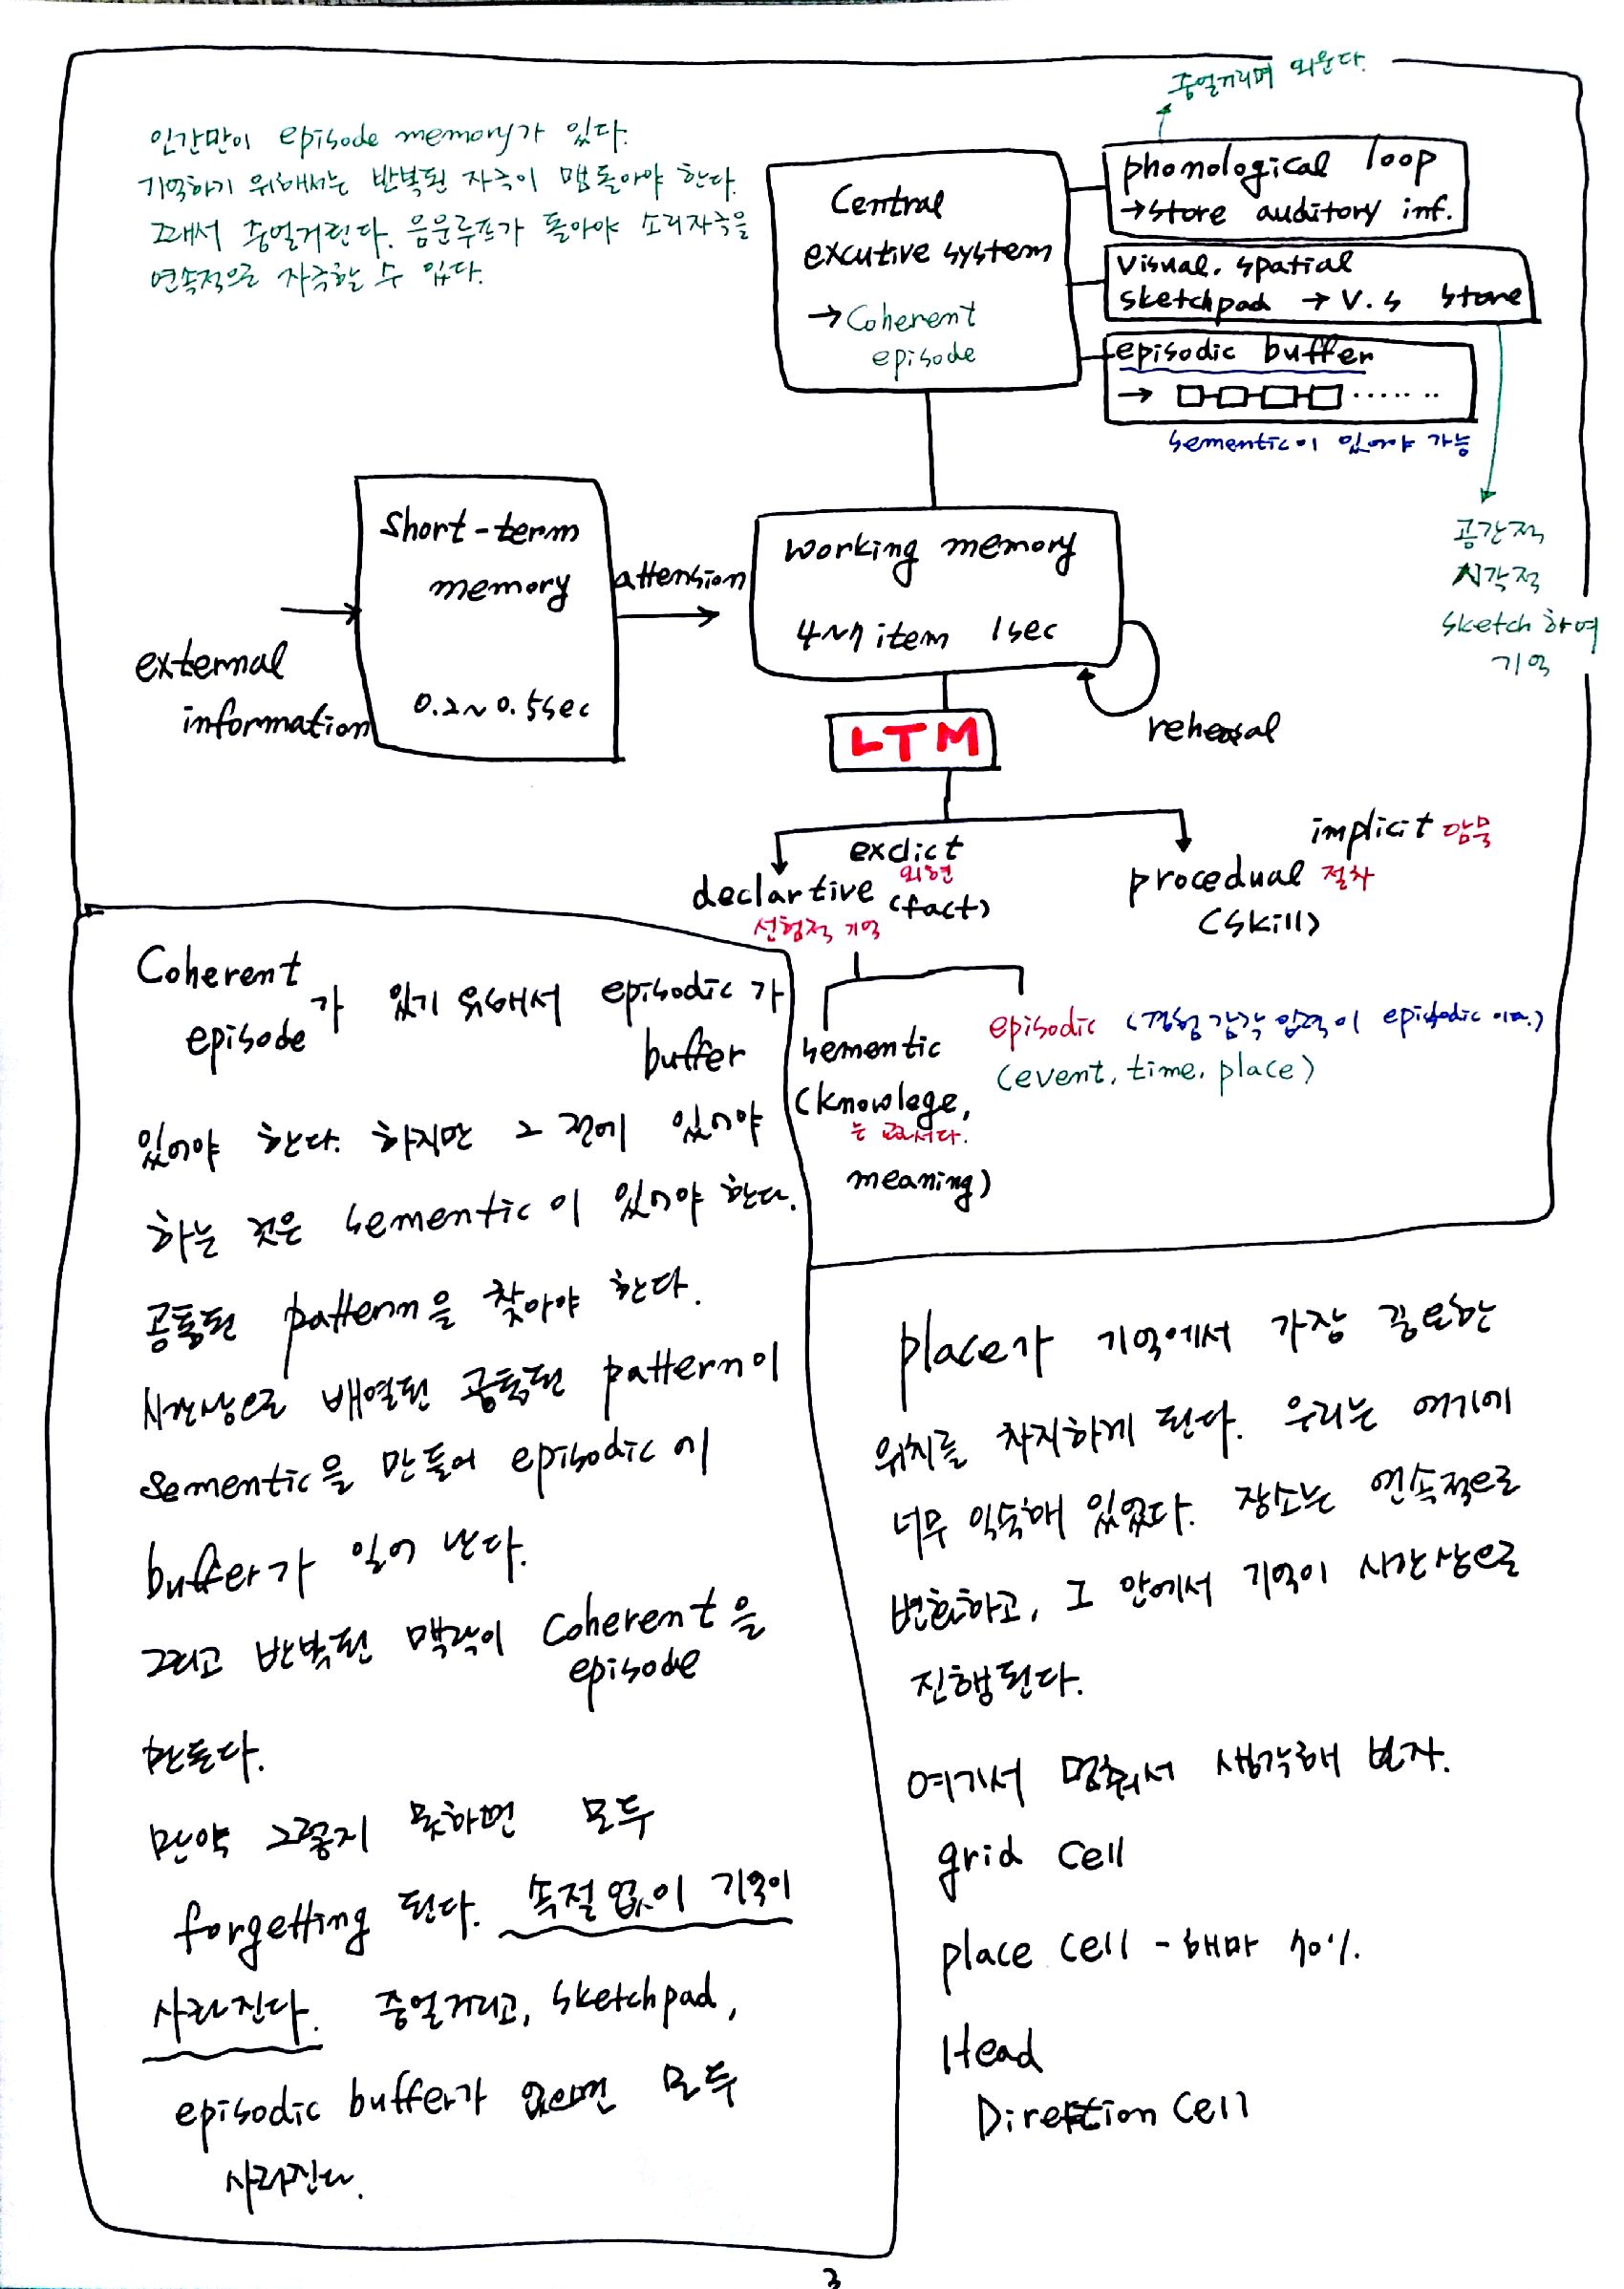 중얼거리며 외운다.
인간만이 episode memory가 있다.
기억하기 위해서는 반복된 자극이 맴돌아야 한다.
그래서 중얼거린다. 음운루프가 돌아야 소리자극을
연속적으로 자극할 수 있다.
Central
excutive system
→ Coherent
episode
phonological loop
→ store auditory inf.
visual. spatial
sketchpad → V.S store
episodic buffer
→
sementic이 있어야 가능
공간적
시각적
sketch 하여
기억
short-term
memory
0.2~0.5sec
external
information
attension
working memory
4~7 item 1sec
rehearsal
LTM
exclict
외현
declartive (fact)
선험적 기억
implicit 암묵
procedual 절차
(skill)
sementic
(knowlege,
는 교과서다.
meaning)
episodic (경험 감각 입력이 episodic이다.)
(event, time, place)
Coherent
episode가 있기 위해서 episodic
buffer가
있어야 한다. 하지만 그 전에 있어야
하는 것은 sementic이 있어야 한다.
공통된 pattern을 찾아야 한다.
시간상으로 배열된 공통된 pattern이
sementic을 만들어 episodic에
buffer가 일어 난다.
그리고 반복된 맥락이 Coherent
episode을
만든다.
만약 그렇지 못하면 모두
forgetting 된다. 속절없이 기억이
사라진다. 중얼거리고, sketchpad,
episodic buffer가 없으면 모두
사라진다.
place가 기억에서 가장 중요한
위치를 차지하게 된다. 우리는 여기에
너무 익숙해 있었다. 장소는 연속적으로
변화하고, 그 안에서 기억이 시간상으로
진행된다.
여기서 멈춰서 생각해 보자.
grid cell
place cell - 해마 70%.
Head
Direction Cell
3